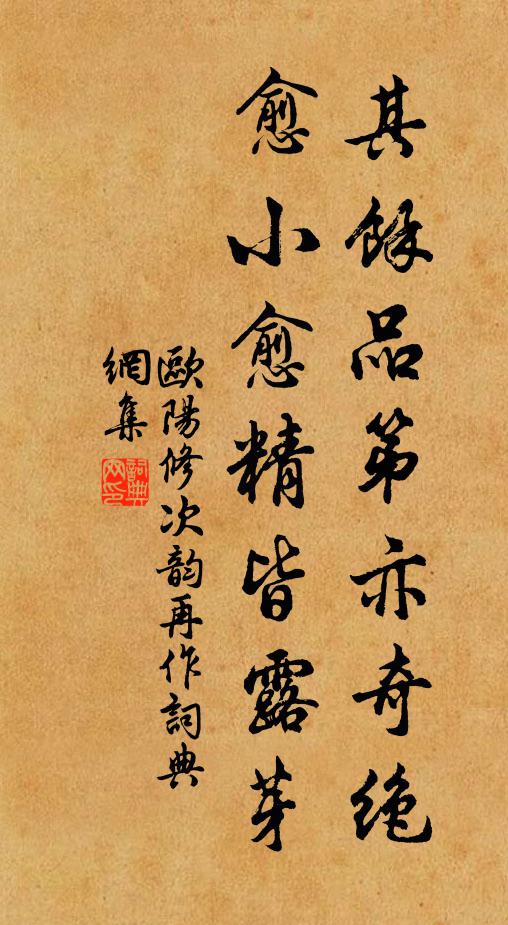 其餘品第亦奇绝
愈小愈精皆露芽
歐陽修次韵再作詞典
網集
詞典網印